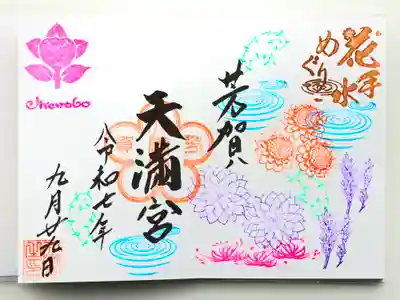 花手水
めぐり
芳賀
天満宮
令和七年
九月廿九日